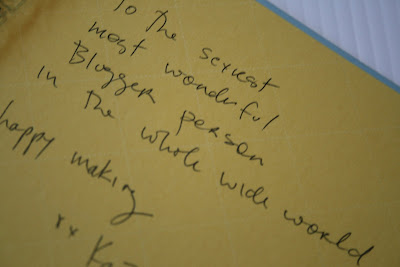 To the sexiest
most wonderful
Blogger person
in the whole wide world
happy making
xx Ka